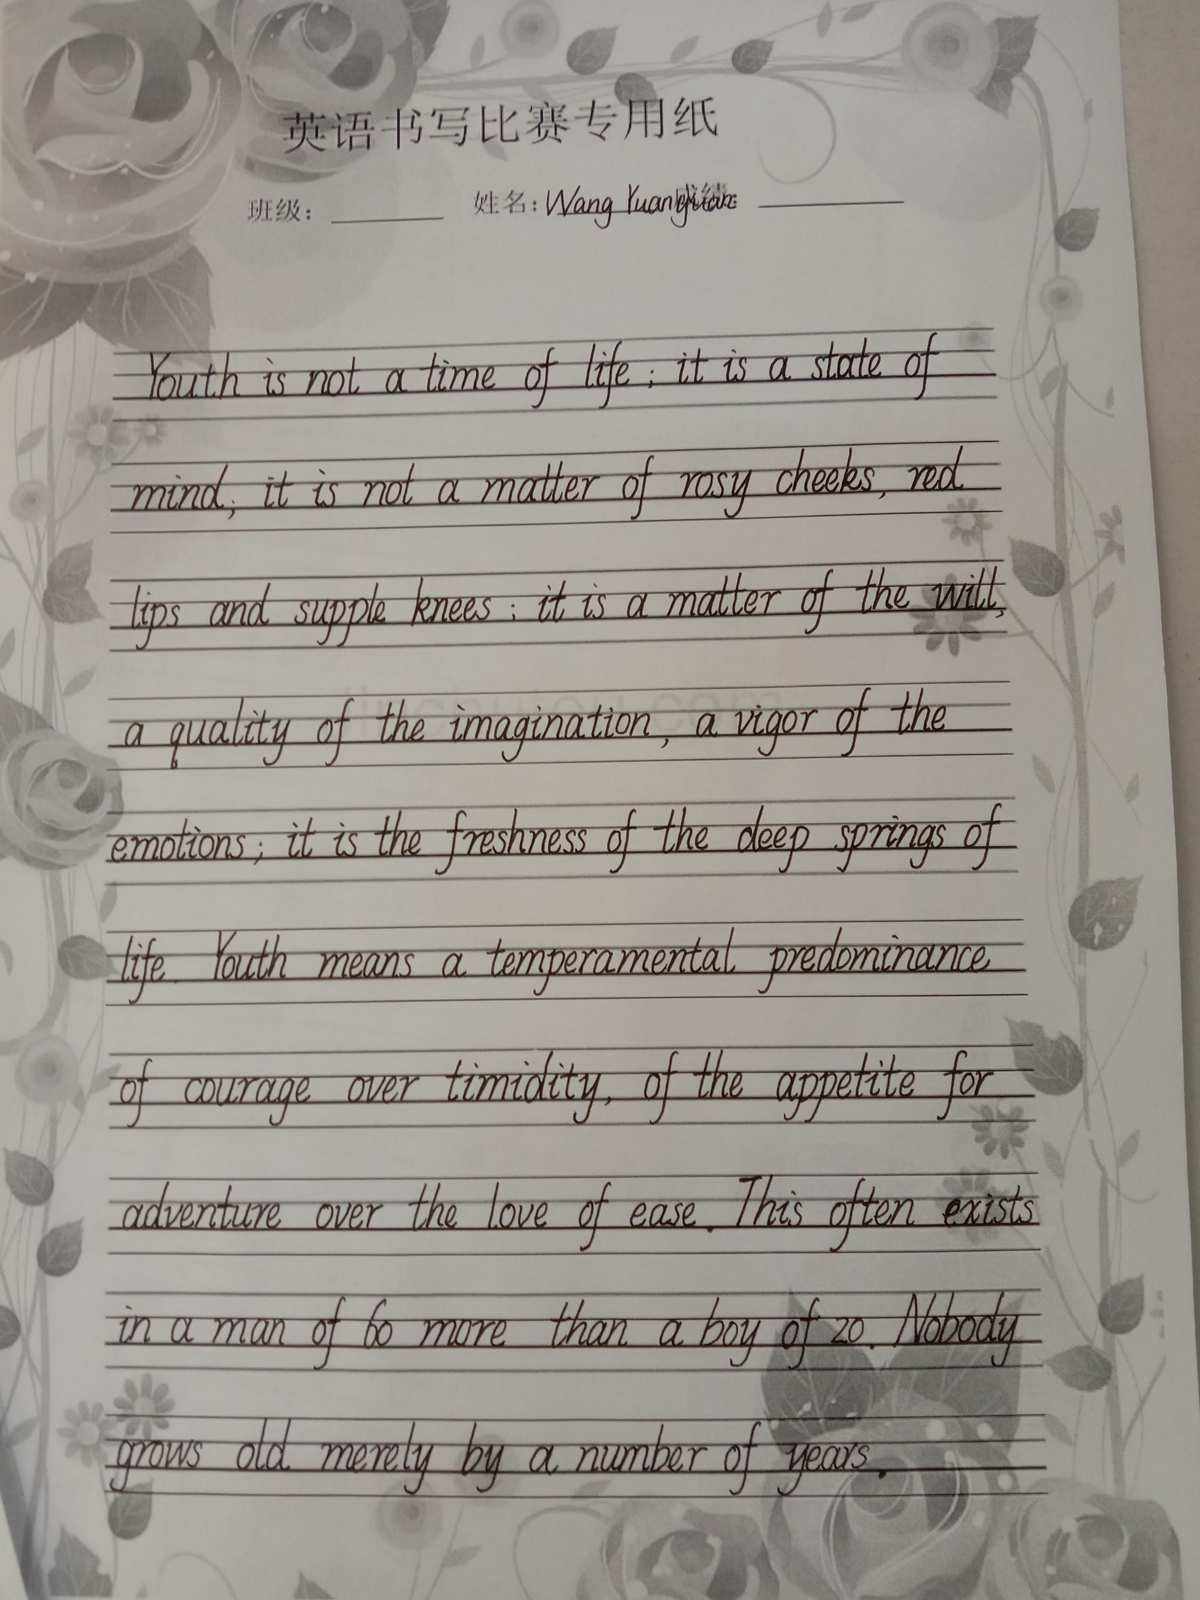 英语书写比赛专用纸
班级: 姓名: Wang 成绩:
Youth is not a time of life; it is a state of
mind; it is not a matter of rosy cheeks, red
lips and supple knees; it is a matter of the will,
a quality of the imagination, a vigor of the
emotions; it is the freshness of the deep springs of
life. Youth means a temperamental predominance
of courage over timidity, of the appetite for
adventure over the love of ease. This often exists
in a man of 60 more than a boy of 20. Nobody
grows old merely by a number of years.